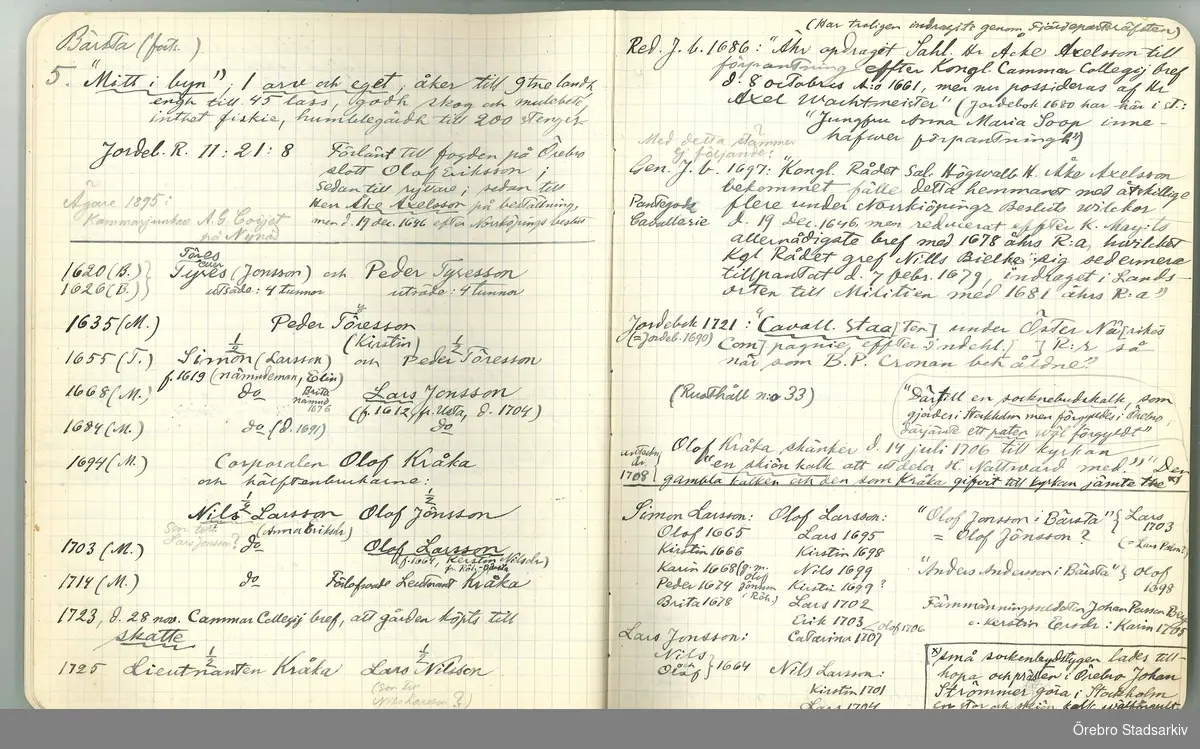 Bärsta (forts.)
5. "Mitt i byn"; 1 arv och eget, åker till 9 tne landh
engh till 45 lass, godh skog och mulebete,
inthet fiskie, humblegårdh till 200 stenger.
Jordel. R. 11:21:8 Förlänt till fogden på Örebro
slott Olof Eriksson;
sedan till ryttare; sedan till
Herr Åke Axelsson på beställning,
men d. 19 dec. 1646 efter Norrköpings beslut
Ägare 1895:
Kammarjunkare A.G. Coijet
på Nynäs
1620 (B.)
1626 (B.)
Töres
eller
Tyres (Jonsson) och Peder Tyresson
utsäde: 4 tunnor utsäde: 4 tunnor
1635 (M.) Peder Töresson
(Kirstin)
1655 (T.) 1/2 Simon (Larsson) och 1/2 Peder Töresson
f. 1619 (nämndeman, Elin)
1668 (M.) do Brita nämnd 1676 Lars Jonsson
(f. 1612, fr. Usta, d. 1704)
1684 (M.) do (d. 1691) do
1694 (M.) Corporalen Olof Kråka
och hälftenbrukarne:
1/2 Nils Larsson 1/2 Olof Jönsson
(Anna Eriksdr)
Son till
Lars Jonsson?
1703 (M.) do Olof Larsson
(f. 1664, Kerstin Nilsdr)
1714 (M.) do Förlofvade Leutnant Kråka
1723, d. 28 nov. Cammar Collegij bref, att gården köpts till
skatte
1725 1/2 Lieutnanten Kråka 1/2 Lars Nilsson
(son till
Nils Larsson?)
(Har troligen indragits genom Fjärdepartsräfsten)
Red. J. b. 1686: "Åhr opdraget Sahl. Hr Åke Axelsson till
förpantning effter Kongl. Cammar Collegij bref
d. 8 octobris A:o 1661, men nu possideras af Hr
Axel Wachtmeister" (Jordebok 1680 har här i st.:
"Jungfru Anna Maria Soop inne-
hafwer förpantningh")
Med detta stämmer
ej följande:
Gen. J. b. 1697: "Kongl. Rådet Sal. Högwälb H. Åke Axelsson
bekommet fälle detta hemmanet med åtskillige
Pantegods flere under Norrkiöpings Besluts wilckor
Cavallerie d. 19 dec. 1646, men reducerat effter K. May:ts
allernådigste bref med 1678 åhrs R:a, hwilcket
Kgl Rådet gref Nills Bielke sig sedermera
tillpantat d. 7 febr. 1679, indraget i Lands-
orten till Militien med 1681 åhrs R:a"
Jordebok 1721: "Cavall. Staa[ten] under Öster Nä[rikes
(= Jordeb. 1690) Com]pagnie, effter Indehl.] R:r så
när som B.P. Cronan behåldne"
(Rusthåll n:o 33)
"Därtill en socknebudskalk, som
giordes i Stockholm men förgyldes i Örebro,
därjämte ett paten wäl förgyldt"
Olof Kråka skänker d. 14 juli 1706 till kyrkan
"en skiön kalk att utdela H. Nattward med." "Den
1708 gambla kalken och den som Kråka gifvit till kyrkan jämte the x)
Simon Larsson:
Olof 1665
Kirstin 1666
Karin 1668 (g.m. Olof Jönsson
Peder 1674
Brita 1678
Lars Jonsson:
Nils
Olof } 1664
Olof Larsson:
Lars 1695
Kirstin 1698
Nils 1699
Kirstin 1699?
Lars 1702
Erik 1703 Olof 1706
Catarina 1707
Nils Larsson:
Kirstin 1701
Lars 1704
"Olof Jonsson i Bärsta" } Lars 1703
= Olof Jönsson? (= Lars Palm?)
"Anders Andersson i Bärsta" } Olof 1698
Femmänningssoldaten Johan Persson Berg
o. Kerstin Ersdr: Karin 1705
x) små sockenbudstygen lades till-
hopa och prästen i Örebro Johan
Strömmer göra i Stockholm
en stor och skiön kalk
Örebro Stadsarkiv